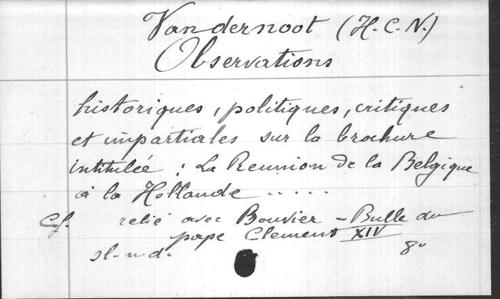 Vandernoot (H.C.N.)
Observations
historiques, politiques, critiques
et impartiales sur la brochure
intitulée : La Reunion de la Belgique
à la Hollande .....
Cf. relié avec Bouvier - Bulle du
pape Clement XIV
sl-nd. 8º